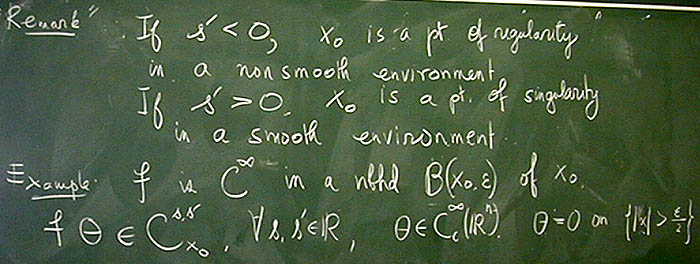 "Remark" If s' < 0, x₀ is a pt of regularity
in a nonsmooth environment
If s' > 0, x₀ is a pt. of singularity
in a smooth environment.
Example. f is C^∞ in a nbhd B(x₀,ε) of x₀.
f θ ∈ C^{s,s'}_{x₀}, ∀ s, s' ∈ ℝ, θ ∈ C_c^∞(ℝⁿ). θ=0 on {|x| > ε/2}